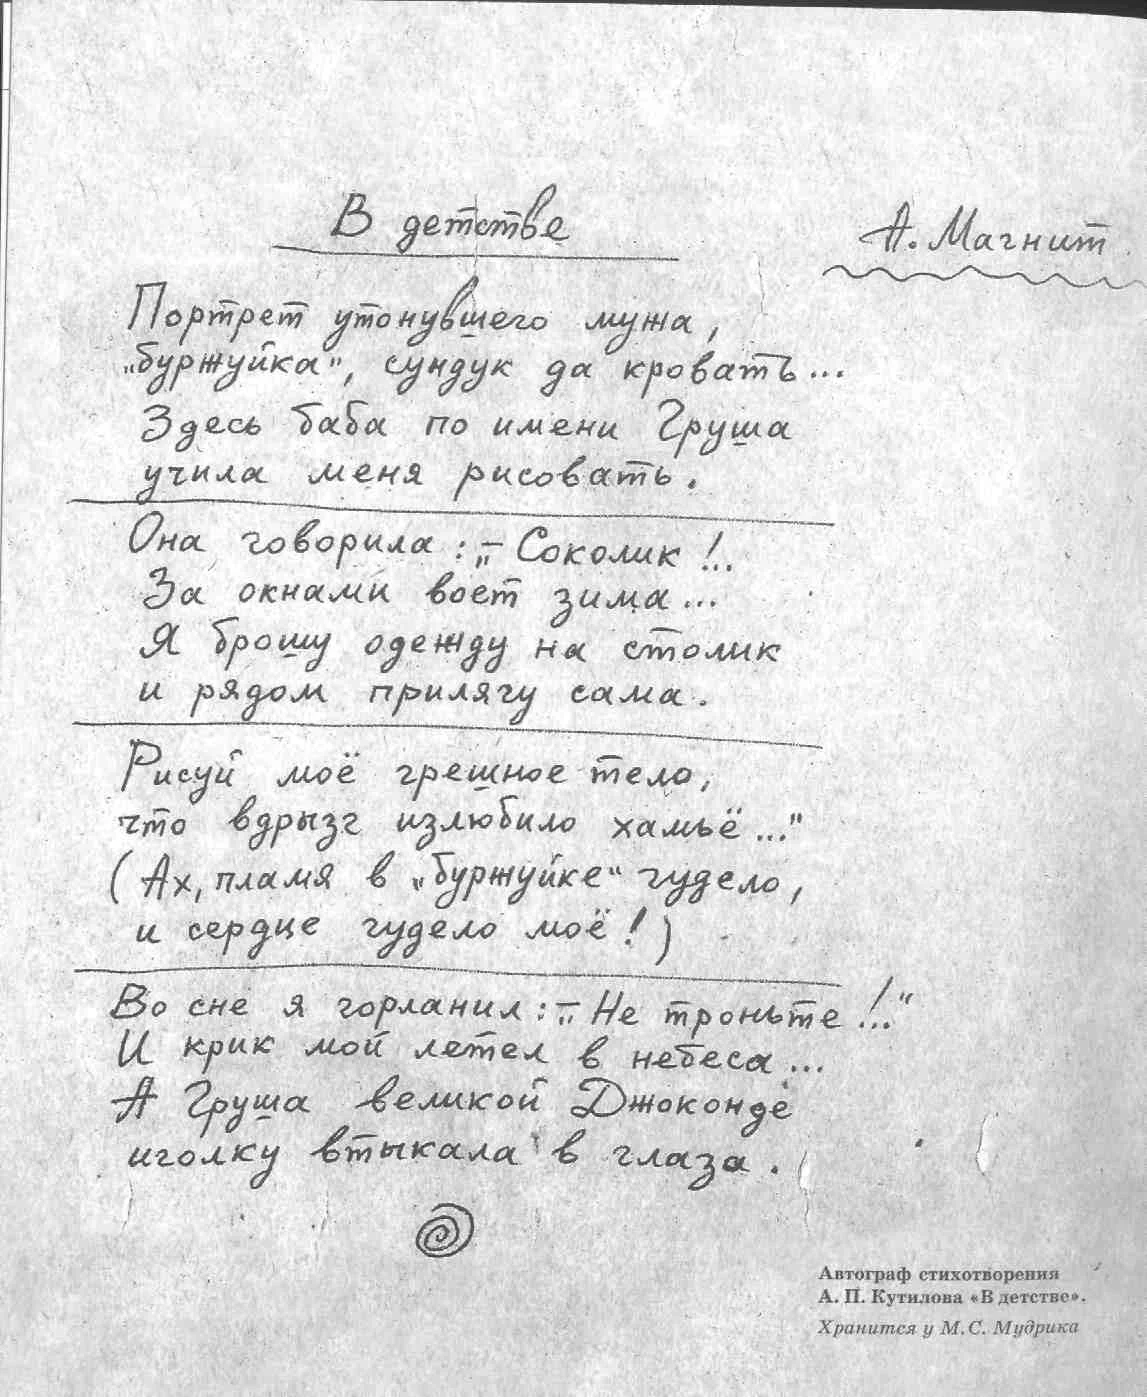 В детстве
А. Магнит
Портрет утонувшего мужа,
„буржуйка“, сундук да кровать...
Здесь баба по имени Груша
учила меня рисовать.
Она говорила: „– Соколик!..
За окнами воет зима...
Я брошу одежду на столик
и рядом прилягу сама.
Рисуй моё грешное тело,
что вдрызг излюбило хамьё...“
(Ах, пламя в „буржуйке“ гудело,
и сердце гудело моё!)
Во сне я горланил: „– Не троньте!..“
И крик мой летел в небеса...
А Груша великой Джоконде
иголку втыкала в глаза.
Автограф стихотворения
А. П. Кутилова «В детстве».
Хранится у М. С. Мудрика